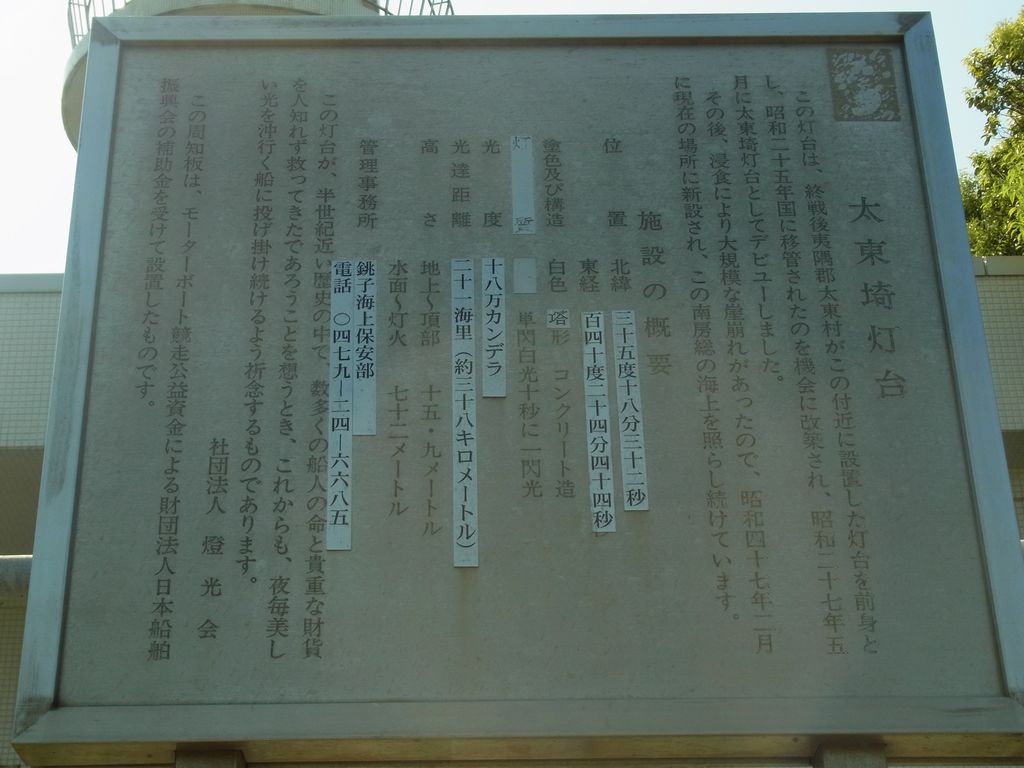 太東埼灯台
この灯台は、終戦後夷隅郡太東村がこの付近に設置した灯台を前身と
し、昭和二十五年国に移管されたのを機会に改築され、昭和二十七年五
月に太東埼灯台としてデビューしました。
その後、浸食により大規模な崖崩れがあったので、昭和四十七年二月
に現在の場所に新設され、この南房総の海上を照らし続けています。
施設の概要
位置 北緯 三十五度十八分三十二秒
東経 百四十度二十四分四十四秒
塗色及び構造 白色 塔形 コンクリート造
灯質 単閃白光十秒に一閃光
光度 十八万カンデラ
光達距離 二十一海里（約三十八キロメートル）
高さ 地上〜頂部 十五・九メートル
水面〜灯火 七十二メートル
管理事務所 銚子海上保安部
電話 〇四七九―二四―六六八五
この灯台が、半世紀近い歴史の中で、数多くの船人の命と貴重な財貨
を人知れず救ってきたであろうことを想うとき、これからも、夜毎美し
い光を沖行く船に投げ掛け続けるよう祈念するものであります。
社団法人 燈光会
この周知板は、モーターボート競走公益資金による財団法人日本船舶
振興会の補助金を受けて設置したものです。